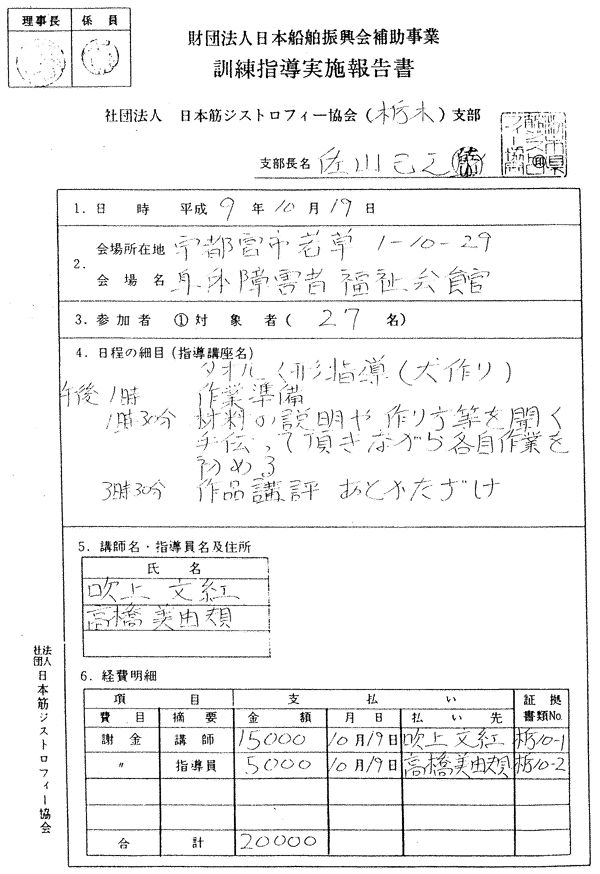 理事長 係員
財団法人日本船舶振興会補助事業
訓練指導実施報告書
社団法人 日本筋ジストロフィー協会(栃木)支部
支部長名 佐川
1.日 時 平成 9 年 10 月 19 日
2. 会場所在地 宇都宮市若草 1-10-29
会場名 身体障害者福祉会館
3.参加者 ①対象者( 27 名)
4.日程の細目(指導講座名)
タオル人形指導(犬作り)
午後 1時 作業準備
1時30分 材料の説明や作り方等を聞く
手伝って頂きながら各自作業を
初める
3時30分 作品講評 あとかたずけ
5.講師名・指導員名及住所
氏 名
吹上 文紅
高橋美由
6.経費明細
項 目 支 払 い 証拠書類No.
費 目 摘 要 金 額 月 日 払 い 先
謝金 講師 15000 10月19日 吹上 文紅 栃10-1
〃 指導員 5000 10月19日 高橋美由 栃10-2
合 計 20000
社団法人 日本筋ジストロフィー協会